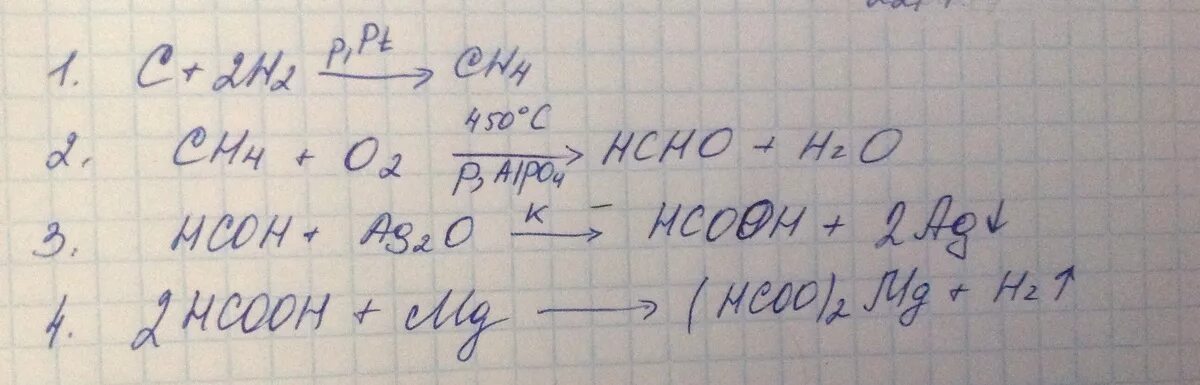 1. C + 2H₂ —P, Pt→ CH₄
2. CH₄ + O₂ —450°C / P, AlPO₄→ HCHO + H₂O
3. HCOH + Ag₂O —к→ HCOOH + 2Ag↓
4. 2HCOOH + Mg → (HCOO)₂Mg + H₂↑